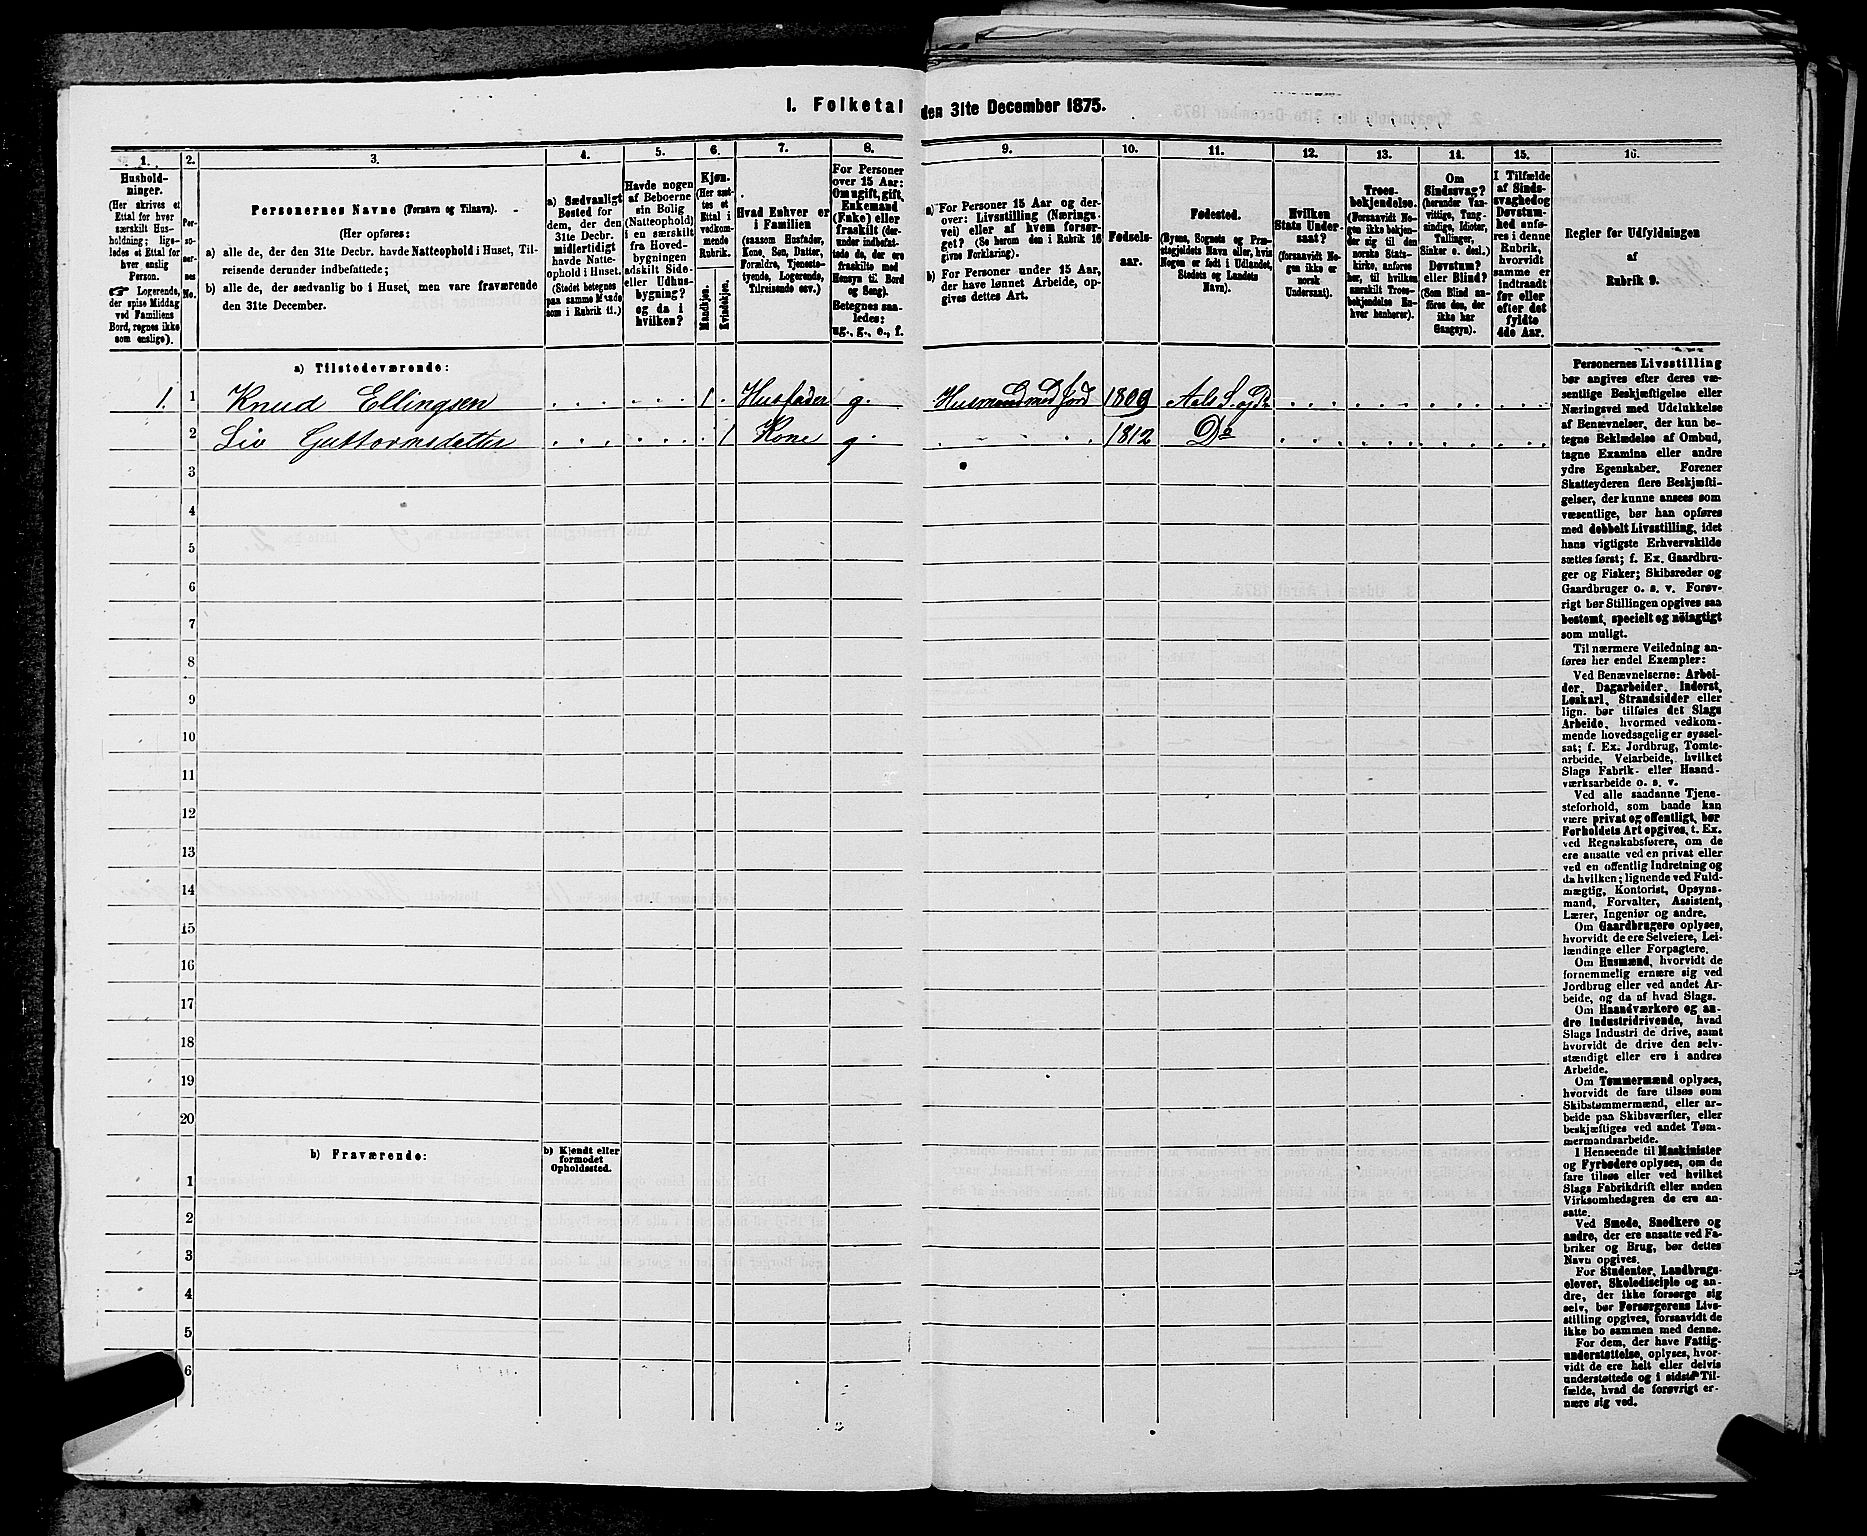 I. Folketal den 31te December 1875.
1. 2. 3. 4. 5. 6. 7. 8. 9. 10. 11. 12. 13. 14. 15. 16.
Hushold-
ninger.
(Her skrives et
Ettal for hver
særskilt Hus-
holdning; lige-
ledes et Ettal for
hver enslig
Person.
☛ Logerende,
der spise Middag
ved Familiens
Bord, regnes ikke
som enslige).
Per-
so-
ner-
nes
No.
Personernes Navne (Fornavn og Tilnavn).
(Her opføres:
a) alle de, der den 31te Decbr. havde Natteophold i Huset, Til-
reisende derunder indbefattede;
b) alle de, der sædvanlig bo i Huset, men vare fraværende
den 31te December.
a) Sædvanligt
Bosted for
dem, der den
31te Decbr.
midlertidigt
havde Natte-
ophold i Huset.
(Stedet betegnes
paa samme Maade
som i Rubrik 11.)
Havde nogen
af Beboerne
sin Bolig
(Natteophold)
i en særskilt
fra Hoved-
bygningen
adskilt Side-
eller Udhus-
bygning?
og da i
hvilken?
Kjøn.
(Her sæt-
tes et
Ettal i
vedkom-
mende
Rubrik.
Mandkjøn.
Kvindekjøn.
Hvad Enhver er
i Familien
(saasom Husfader,
Kone, Søn, Datter,
Forældre, Tjeneste-
tyende, Logerende,
Tilreisende osv.)
For Personer
over 15 Aar:
Om ugift, gift,
Enkemand
(Enke) eller
fraskilt (der-
under indbefat-
tede de, der ere
fraskilte med
Hensyn til Bord
og Seng).
Betegnes saa-
ledes:
ug., g., e., f.
a) For Personer 15 Aar og der-
over: Livsstilling (Nærings-
vei) eller af hvem forsør-
get? (Se herom den i Rubrik 16
givne Forklaring).
b) For Personer under 15 Aar,
der have lønnet Arbeide, op-
gives dettes Art.
Fødsels-
aar.
Fødested.
(Byens, Sognets og Præ-
stegjeldets Navn eller, hvis
Nogen er født i Udlandet,
Stedets og Landets
Navn).
Hvilken
Stats Under-
saat?
(forsaavidt No-
gen ikke er
norsk
Undersaat).
Troes-
bekjendelse.
(Forsaavidt No-
gen ikke bekjen-
der sig til den
norske Stats-
kirke, anføres
her, til hvilken
særskilt Troes-
bekjendelse En-
hver henhører).
Om
Sindssvag?
(herunder Van-
vittige, Tung-
sindige, Idioter,
Tullinger,
Sinker o. desl.)
Døvstum?
eller Blind?
(Som Blind an-
føres den, der
ikke har
Gangsyn).
I Tilfælde
af Sinds-
svaghed og
Døvstum-
hed anfø-
res i denne
Rubrik,
hvorvidt
samme er
indtraadt
før eller
efter det
fyldte
4de Aar.
Regler for Udfyldningen
af
Rubrik 9.
a) Tilstedeværende:
1. 1 Knud Ellingsen 1. Husfader g. Husmand med Jord 1809 Aals S. og Pr.
2 Liv Guttormsdatter 1 Kone g. 1812 Do
3
4
5
6
7
8
9
10
11
12
13
14
15
16
17
18
19
20
b) Fraværende:
b) Kjendt eller
formodet
Opholdssted.
1
2
3
4
5
6
Personernes Livsstilling
bør angives efter deres væ-
sentlige Beskjæftigelse eller
Næringsvei med Udelukkelse
af Benævnelser, der kun be-
tegne Beklædelse af Ombud,
tagne Examina eller andre
ydre Egenskaber. Forener
Skatteyderen flere Beskjæfti-
gelser, der kunne ansees som
væsentlige, bør han opføres
med dobbelt Livsstilling, idet
hans vigtigste Erhvervskilde
sættes først; f. Ex. Gaardbru-
ger og Fisker; Skibsreder og
Gaardbruger o. s. v. Forøv-
rigt bør Stillingen opgives saa
bestemt, specielt og nöiagtigt
som muligt.
Til nærmere Veiledning an-
føres her endel Exempler:
Ved Benævnelserne: Arbei-
der, Dagarbeider, Inderst,
Løskarl, Strandsidder eller
lign. bør tilføies det Slags
Arbeide, hvormed vedkom-
mende hovedsagelig er syssel-
sat; f. Ex. Jordbrug, Tomte-
arbeide, Veiarbeide, hvilket
Slags Fabrik- eller Haand-
værksarbeide o. s. v.
Ved alle saadanne Tjene-
steforhold, som baade kan
være privat og offentligt, bør
Forholdets Art opgives, t. Ex.
ved Regnskabsførere, om de
ere ansatte ved en privat eller
ved en offentlig Indretning og
da hvilken; lignende ved Fuld-
mægtig, Kontorist, Opsyns-
mand, Forvalter, Assistent,
Lærer, Ingeniør og andre.
Om Gaardbrugere oplyses,
hvorvidt de ere Selveiere, Lei-
lændinge eller Forpagtere.
Om Husmænd, hvorvidt de
fornemmelig ernære sig ved
Jordbrug eller ved andet Ar-
beide, og da af hvad Slags.
Om Haandværkere og an-
dre Industridrivende, hvad
Slags Industri de drive, samt
hvorvidt de drive den selv-
stændigt eller ere i andres
Arbeide.
Om Tømmermænd oplyses,
hvorvidt de fare tilsøs som
Skibstømmermænd, eller ar-
beide paa Skibsværfter, eller
beskjæftiges ved andet Tøm-
mermandsarbeide.
I Henseende til Maskinister
og Fyrbødere oplyses, om de
fare tilsøs eller ved hvilket
Slags Fabrikdrift eller anden
Virksomhedsgren de ere an-
satte.
Ved Smede, Snedkere og
andre, der ere ansatte ved Fa-
briker og Brug, bør dettes
Navn opgives.
For Studenter, Landbrugs-
elever, Skoledisciple og an-
dre, der ikke forsørge sig
selv, bør Forsørgerens Livs-
stilling opgives, forsaavidt de
ikke bo sammen med denne.
For dem, der have Fattig-
understøttelse, oplyses, hvor-
vidt de ere helt eller delvis
understøttede og i sidste Til-
fælde, hvad de forøvrigt er-
nære sig ved.